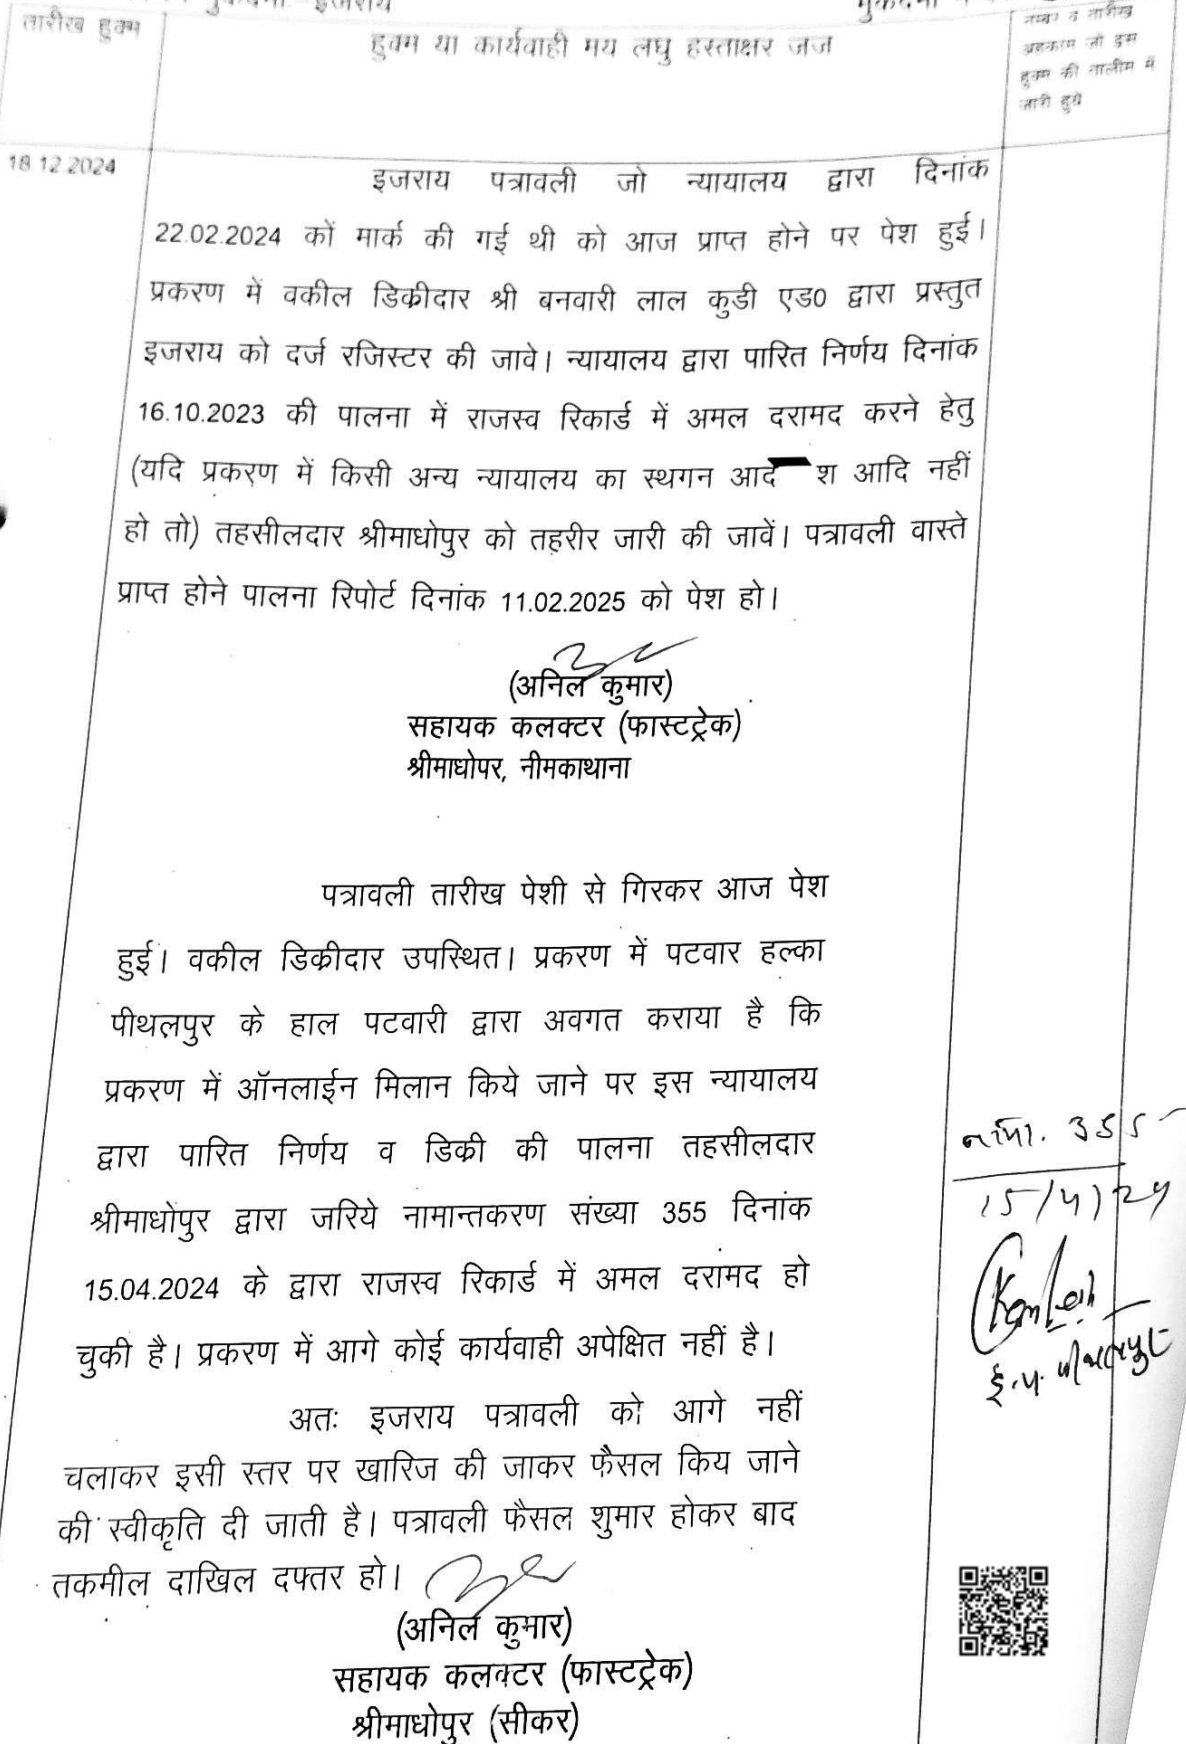 इजराय
तारीख हुक्म
हुक्म या कार्यवाही मय लघु हस्ताक्षर जज
नम्बर व तारीख
अहकाम जो इस
हुक्म की तालीम में
जारी हुये
18.12.2024
इजराय पत्रावली जो न्यायालय द्वारा दिनांक
22.02.2024 कों मार्क की गई थी को आज प्राप्त होने पर पेश हुई।
प्रकरण में वकील डिक्रीदार श्री बनवारी लाल कुडी एड0 द्वारा प्रस्तुत
इजराय को दर्ज रजिस्टर की जावे। न्यायालय द्वारा पारित निर्णय दिनांक
16.10.2023 की पालना में राजस्व रिकार्ड में अमल दरामद करने हेतु
(यदि प्रकरण में किसी अन्य न्यायालय का स्थगन आदेश आदि नहीं
हो तो) तहसीलदार श्रीमाधोपुर को तहरीर जारी की जावें। पत्रावली वास्ते
प्राप्त होने पालना रिपोर्ट दिनांक 11.02.2025 को पेश हो।
(अनिल कुमार)
सहायक कलक्टर (फास्टट्रेक)
श्रीमाधोपर, नीमकाथाना
पत्रावली तारीख पेशी से गिरकर आज पेश
हुई। वकील डिक्रीदार उपस्थित। प्रकरण में पटवार हल्का
पीथलपुर के हाल पटवारी द्वारा अवगत कराया है कि
प्रकरण में ऑनलाईन मिलान किये जाने पर इस न्यायालय
द्वारा पारित निर्णय व डिक्री की पालना तहसीलदार
श्रीमाधोपुर द्वारा जरिये नामान्तकरण संख्या 355 दिनांक
15.04.2024 के द्वारा राजस्व रिकार्ड में अमल दरामद हो
चुकी है। प्रकरण में आगे कोई कार्यवाही अपेक्षित नहीं है।
नामा. 355
15/4/24
Kamlesh
ह.प. पीथलपुर
अतः इजराय पत्रावली को आगे नहीं
चलाकर इसी स्तर पर खारिज की जाकर फैसल किय जाने
की स्वीकृति दी जाती है। पत्रावली फैसल शुमार होकर बाद
तकमील दाखिल दफ्तर हो।
(अनिल कुमार)
सहायक कलक्टर (फास्टट्रेक)
श्रीमाधोपुर (सीकर)